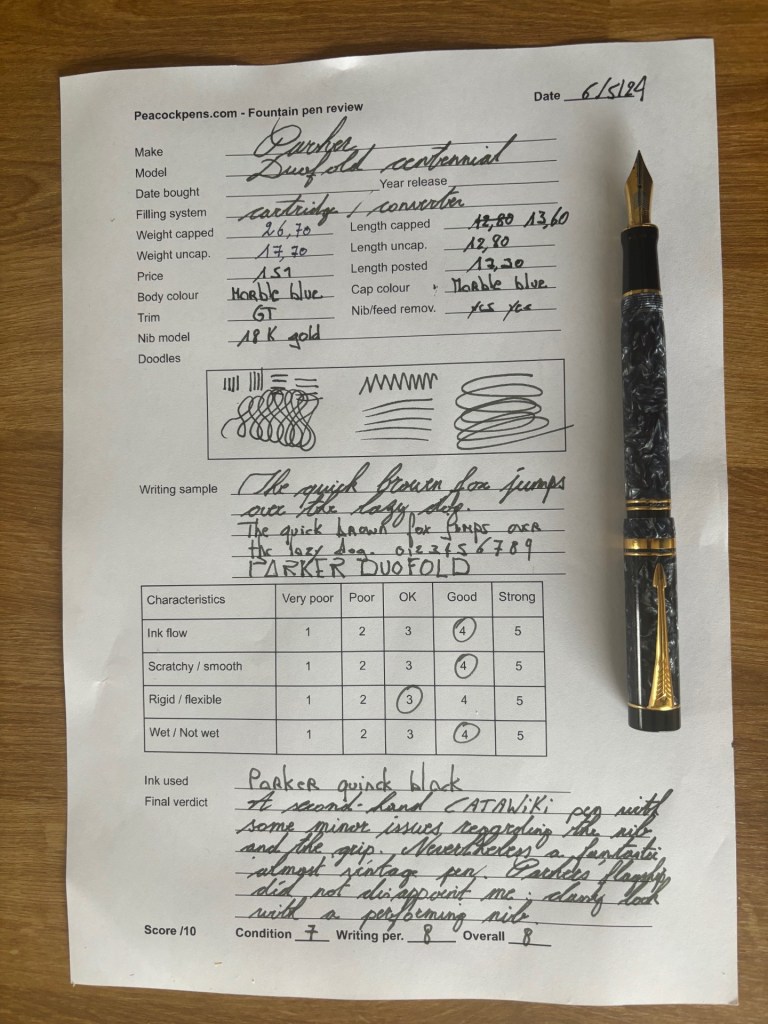 Peacockpens.com - Fountain pen review Date 6/5/24
Make Parker
Model Duofold centennial
Date bought Year release
Filling system cartridge / converter
Weight capped 26,70 Length capped 12,80 13,60
Weight uncap. 17,70 Length uncap. 12,80
Price 151 Length posted
Body colour Marble blue Cap colour Marble blue
Trim GT Nib/feed remov. yes yes
Nib model 18K gold
Doodles
Writing sample The quick brown fox jumps
over the lazy dog.
The quick brown fox jumps over
the lazy dog. 0123456789
PARKER DUOFOLD
Characteristics Very poor Poor OK Good Strong
Ink flow 1 2 3 4 5
Scratchy / smooth 1 2 3 4 5
Rigid / flexible 1 2 3 4 5
Wet / Not wet 1 2 3 4 5
Ink used PARKER quinck black
Final verdict A second-hand CATAWiKi pen with
some minor issues regarding the nib
and the grip. Nevertheless a fantastic
almost vintage pen. Parkers flagship
did not disappoint me; look
with a performing nib.
Score /10 Condition 7 Writing per. 8 Overall 8